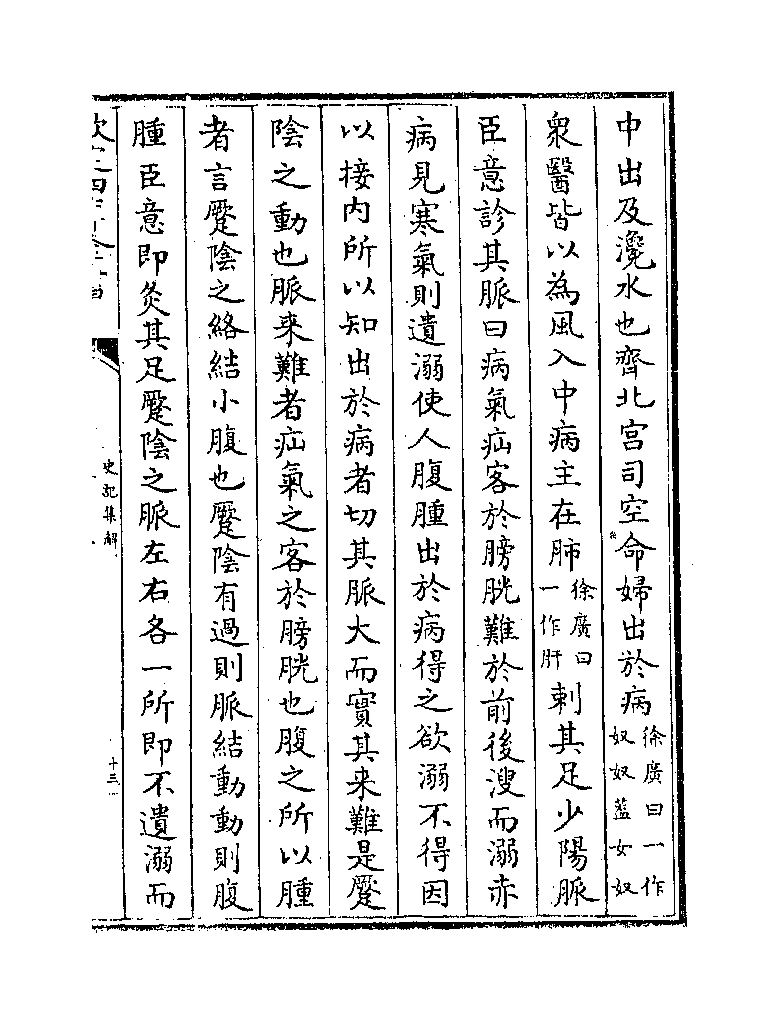 中出及瀺水也齊北宮司空命婦出於病徐廣曰一作奴奴蓋女奴
衆醫皆以為風入中病主在肺徐廣曰一作肝刺其足少陽脈
臣意診其脈曰病氣疝客於膀胱難於前後溲而溺赤
病見寒氣則遺溺使人腹腫出於病得之欲溺不得因
以接内所以知出於病者切其脈大而實其来難是蹷
陰之動也脈来難者疝氣之客於膀胱也腹之所以腫
者言蹷陰之絡結小腹也蹷陰有過則脈結動動則腹
腫臣意即灸其足蹷陰之脈左右各一所即不遺溺而
史記集解
十三